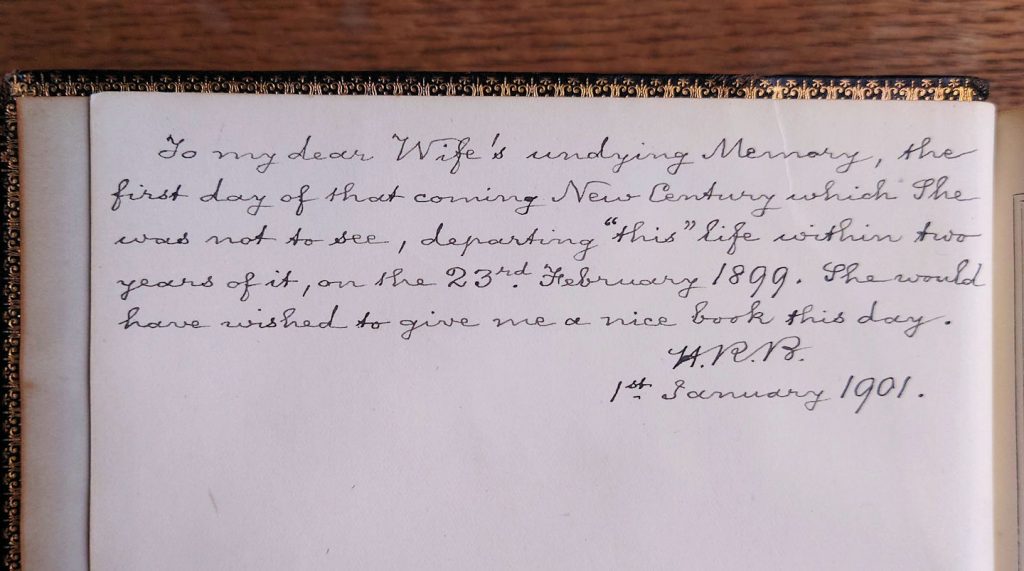 To my dear Wife's undying Memory, the
first day of that coming New Century which She
was not to see, departing "this" life within two
years of it, on the 23rd. February 1899. She would
have wished to give me a nice book this day.
H.R.B.
1st. January 1901.